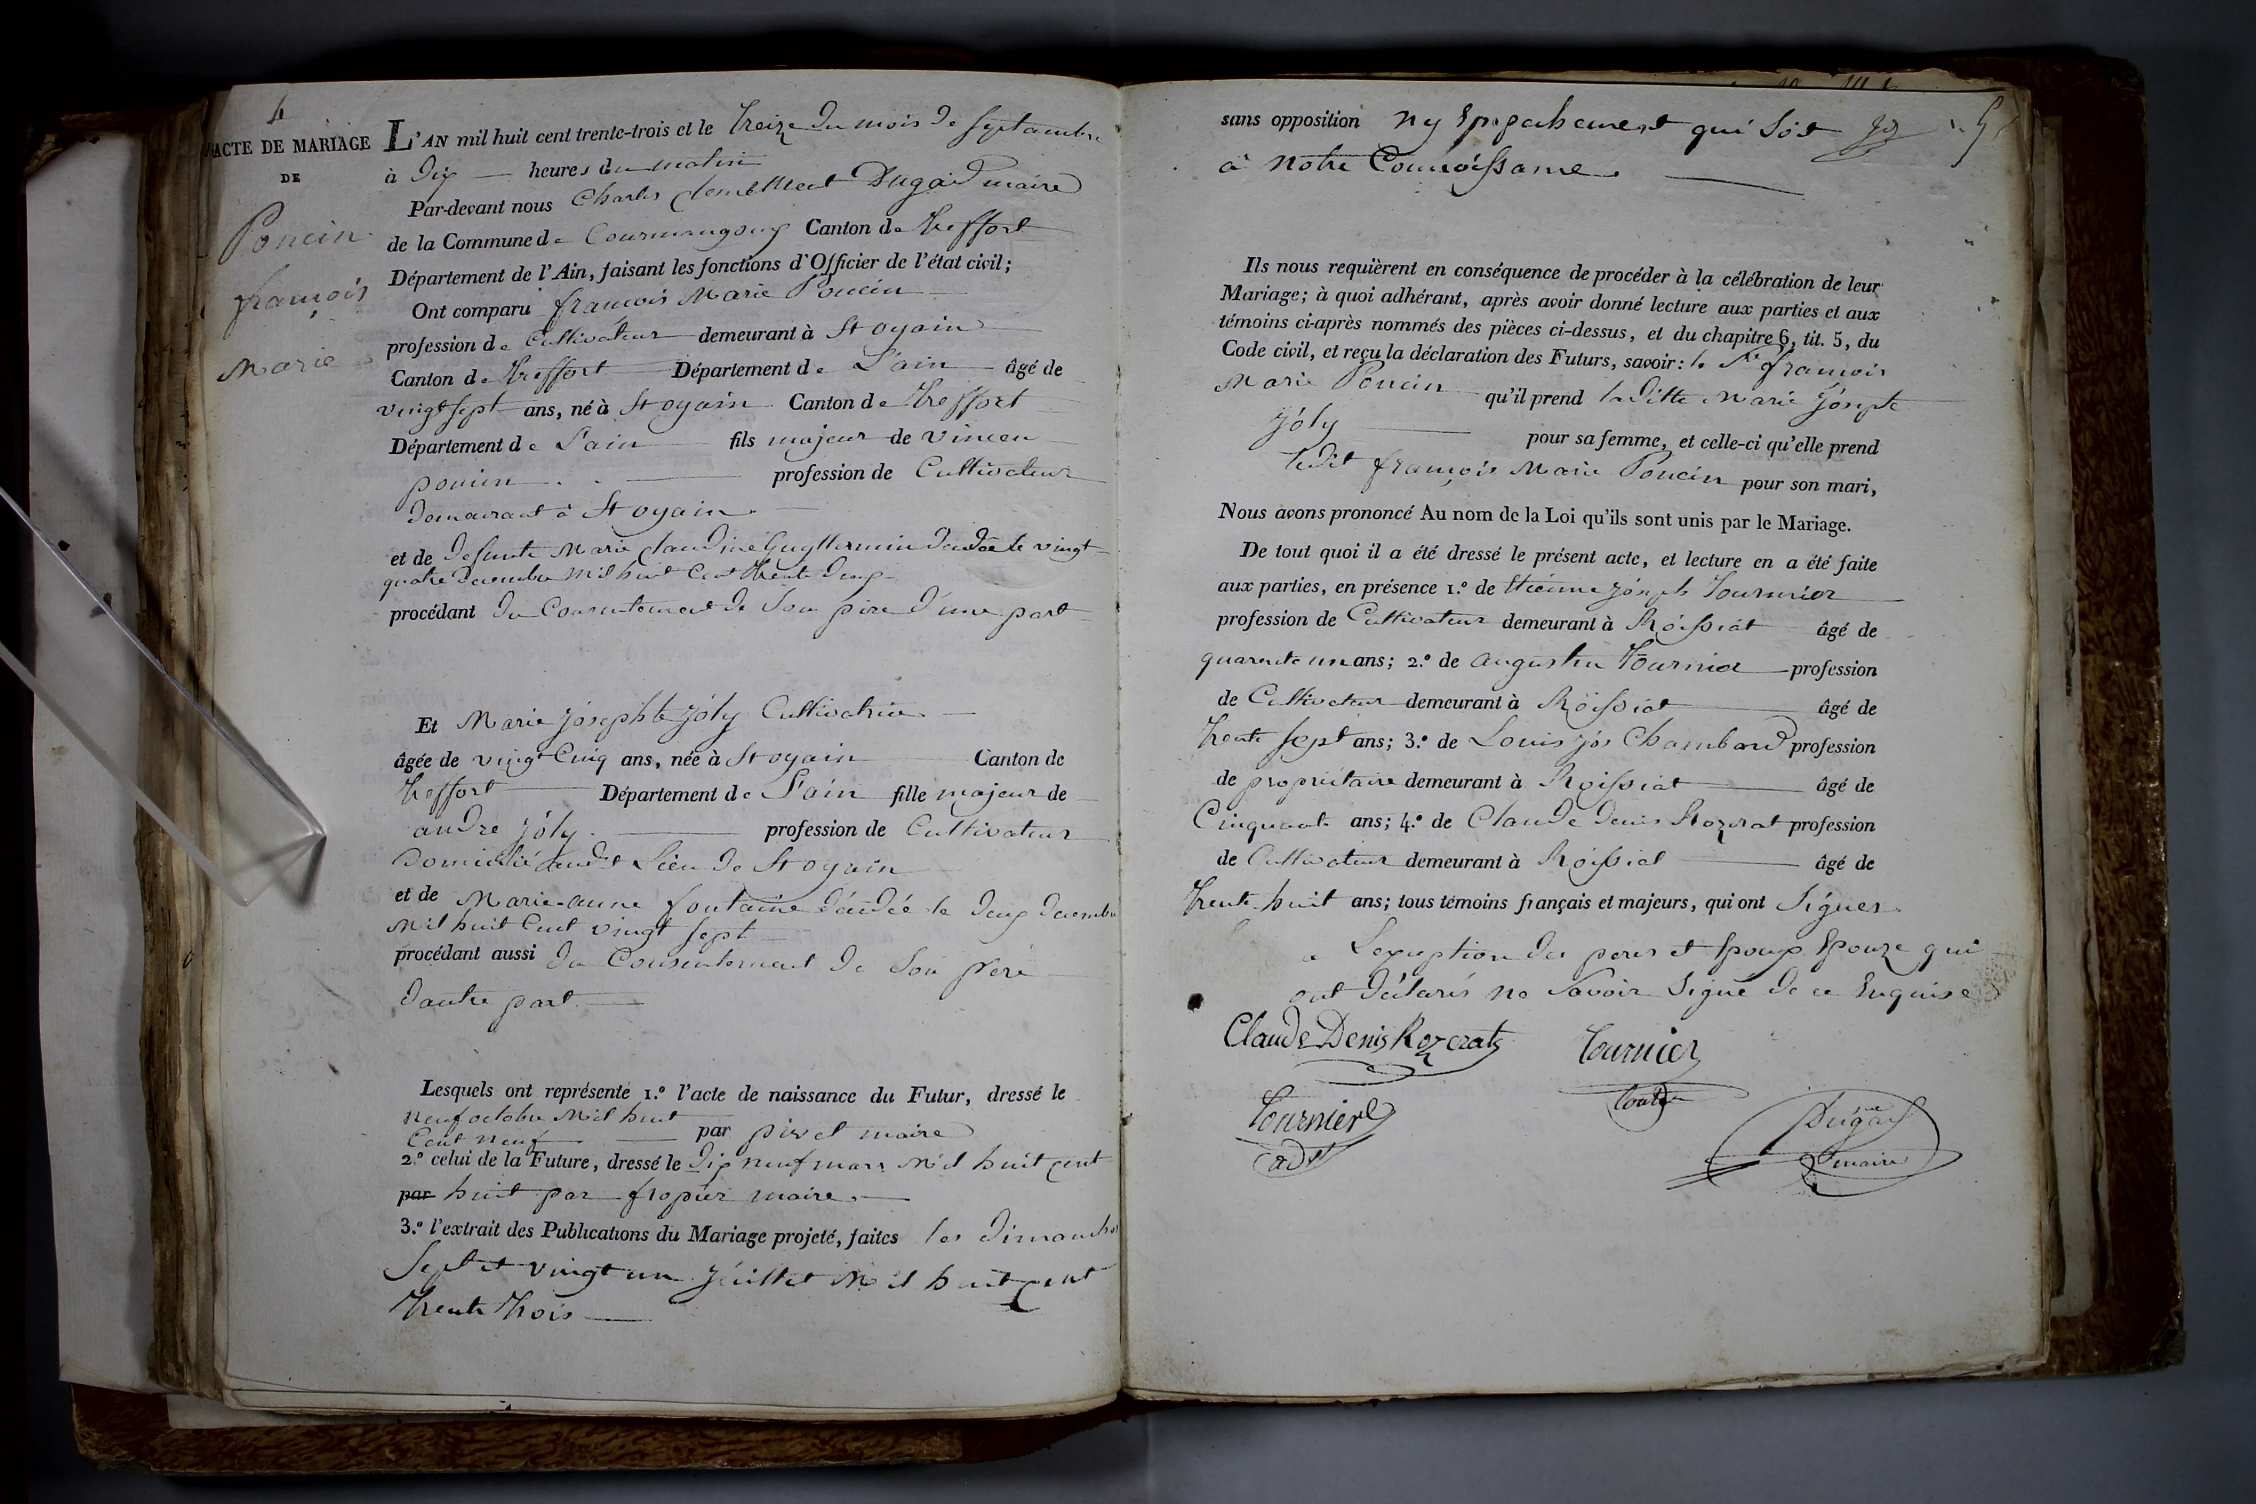 4
ACTE DE MARIAGE
DE
Poncin
françois
Marie
L'AN mil huit cent trente-trois et le treize du mois de Septambre
à dix heures du matin
Par-devant nous Charles Dugad maire
de la Commune de Courmangoux Canton de treffort
Département de l'Ain, faisant les fonctions d'Officier de l'état civil;
Ont comparu françois Marie Poncin
profession de Cultivateur demeurant à St oyain
Canton de treffort Département de L'ain âgé de
vingt sept ans, né à St oyain Canton de treffort
Département de L'ain fils majeur de vincen
poncin profession de Cultivateur
demeurant à St oyain
et de defunte Marie Claudine Guyllermin décédée le vingt
quatre decembre mil huit Cent trente deux
procédant du Consentement de Son père d'une part
Et Marie Josephte Joly Cultivatrice
âgée de vingt Cinq ans, née à St oyain Canton de
treffort Département de L'ain fille majeur de
andré Joly profession de Cultivateur
Domicilié audit Lieu de St oyain
et de Marie-anne fontaine décédée le deux decembre
Mil huit Cent vingt sept
procédant aussi du Consentement de Son père
d'autre part
Lesquels ont représenté 1.º l'acte de naissance du Futur, dressé le
neuf octobre Mil huit
Cent neuf par maire
2.º celui de la Future, dressé le Dix neuf mars Mil huit cent
par huit par fropier maire
3.º l'extrait des Publications du Mariage projeté, faites les dimanches
Sept et vingt un Juillet Mil huit cent
trente trois
sans opposition ny Enpechement qui Soit
à notre Connoissance
Ils nous requièrent en conséquence de procéder à la célébration de leur
Mariage; à quoi adhérant, après avoir donné lecture aux parties et aux
témoins ci-après nommés des pièces ci-dessus, et du chapitre 6, tit. 5, du
Code civil, et reçu la déclaration des Futurs, savoir: le Sr françois
Marie Poncin qu'il prend laditte Marie Josepte
Joly pour sa femme, et celle-ci qu'elle prend
ledit françois Marie Poncin pour son mari,
Nous avons prononcé Au nom de la Loi qu'ils sont unis par le Mariage.
De tout quoi il a été dressé le présent acte, et lecture en a été faite
aux parties, en présence 1.º de Etienne Joseph Tournier
profession de Cultivateur demeurant à Roissiat âgé de
quarente un ans; 2.º de augustin Tournier profession
de Cultivateur demeurant à Roissiat âgé de
trente sept ans; 3.º de Louis Jos Chambard profession
de propriétaire demeurant à Roissiat âgé de
Cinquante ans; 4.º de Claude denis Rozerat profession
de Cultivateur demeurant à Roissiat âgé de
trente huit ans; tous témoins français et majeurs, qui ont Signer
a L'exception des peres et Epoux Epouze qui
ont déclarés ne Savoir Signé de ce Enquise
Claude Denis Rozerat
Tournier
Tournier
adt
Dugad
maire